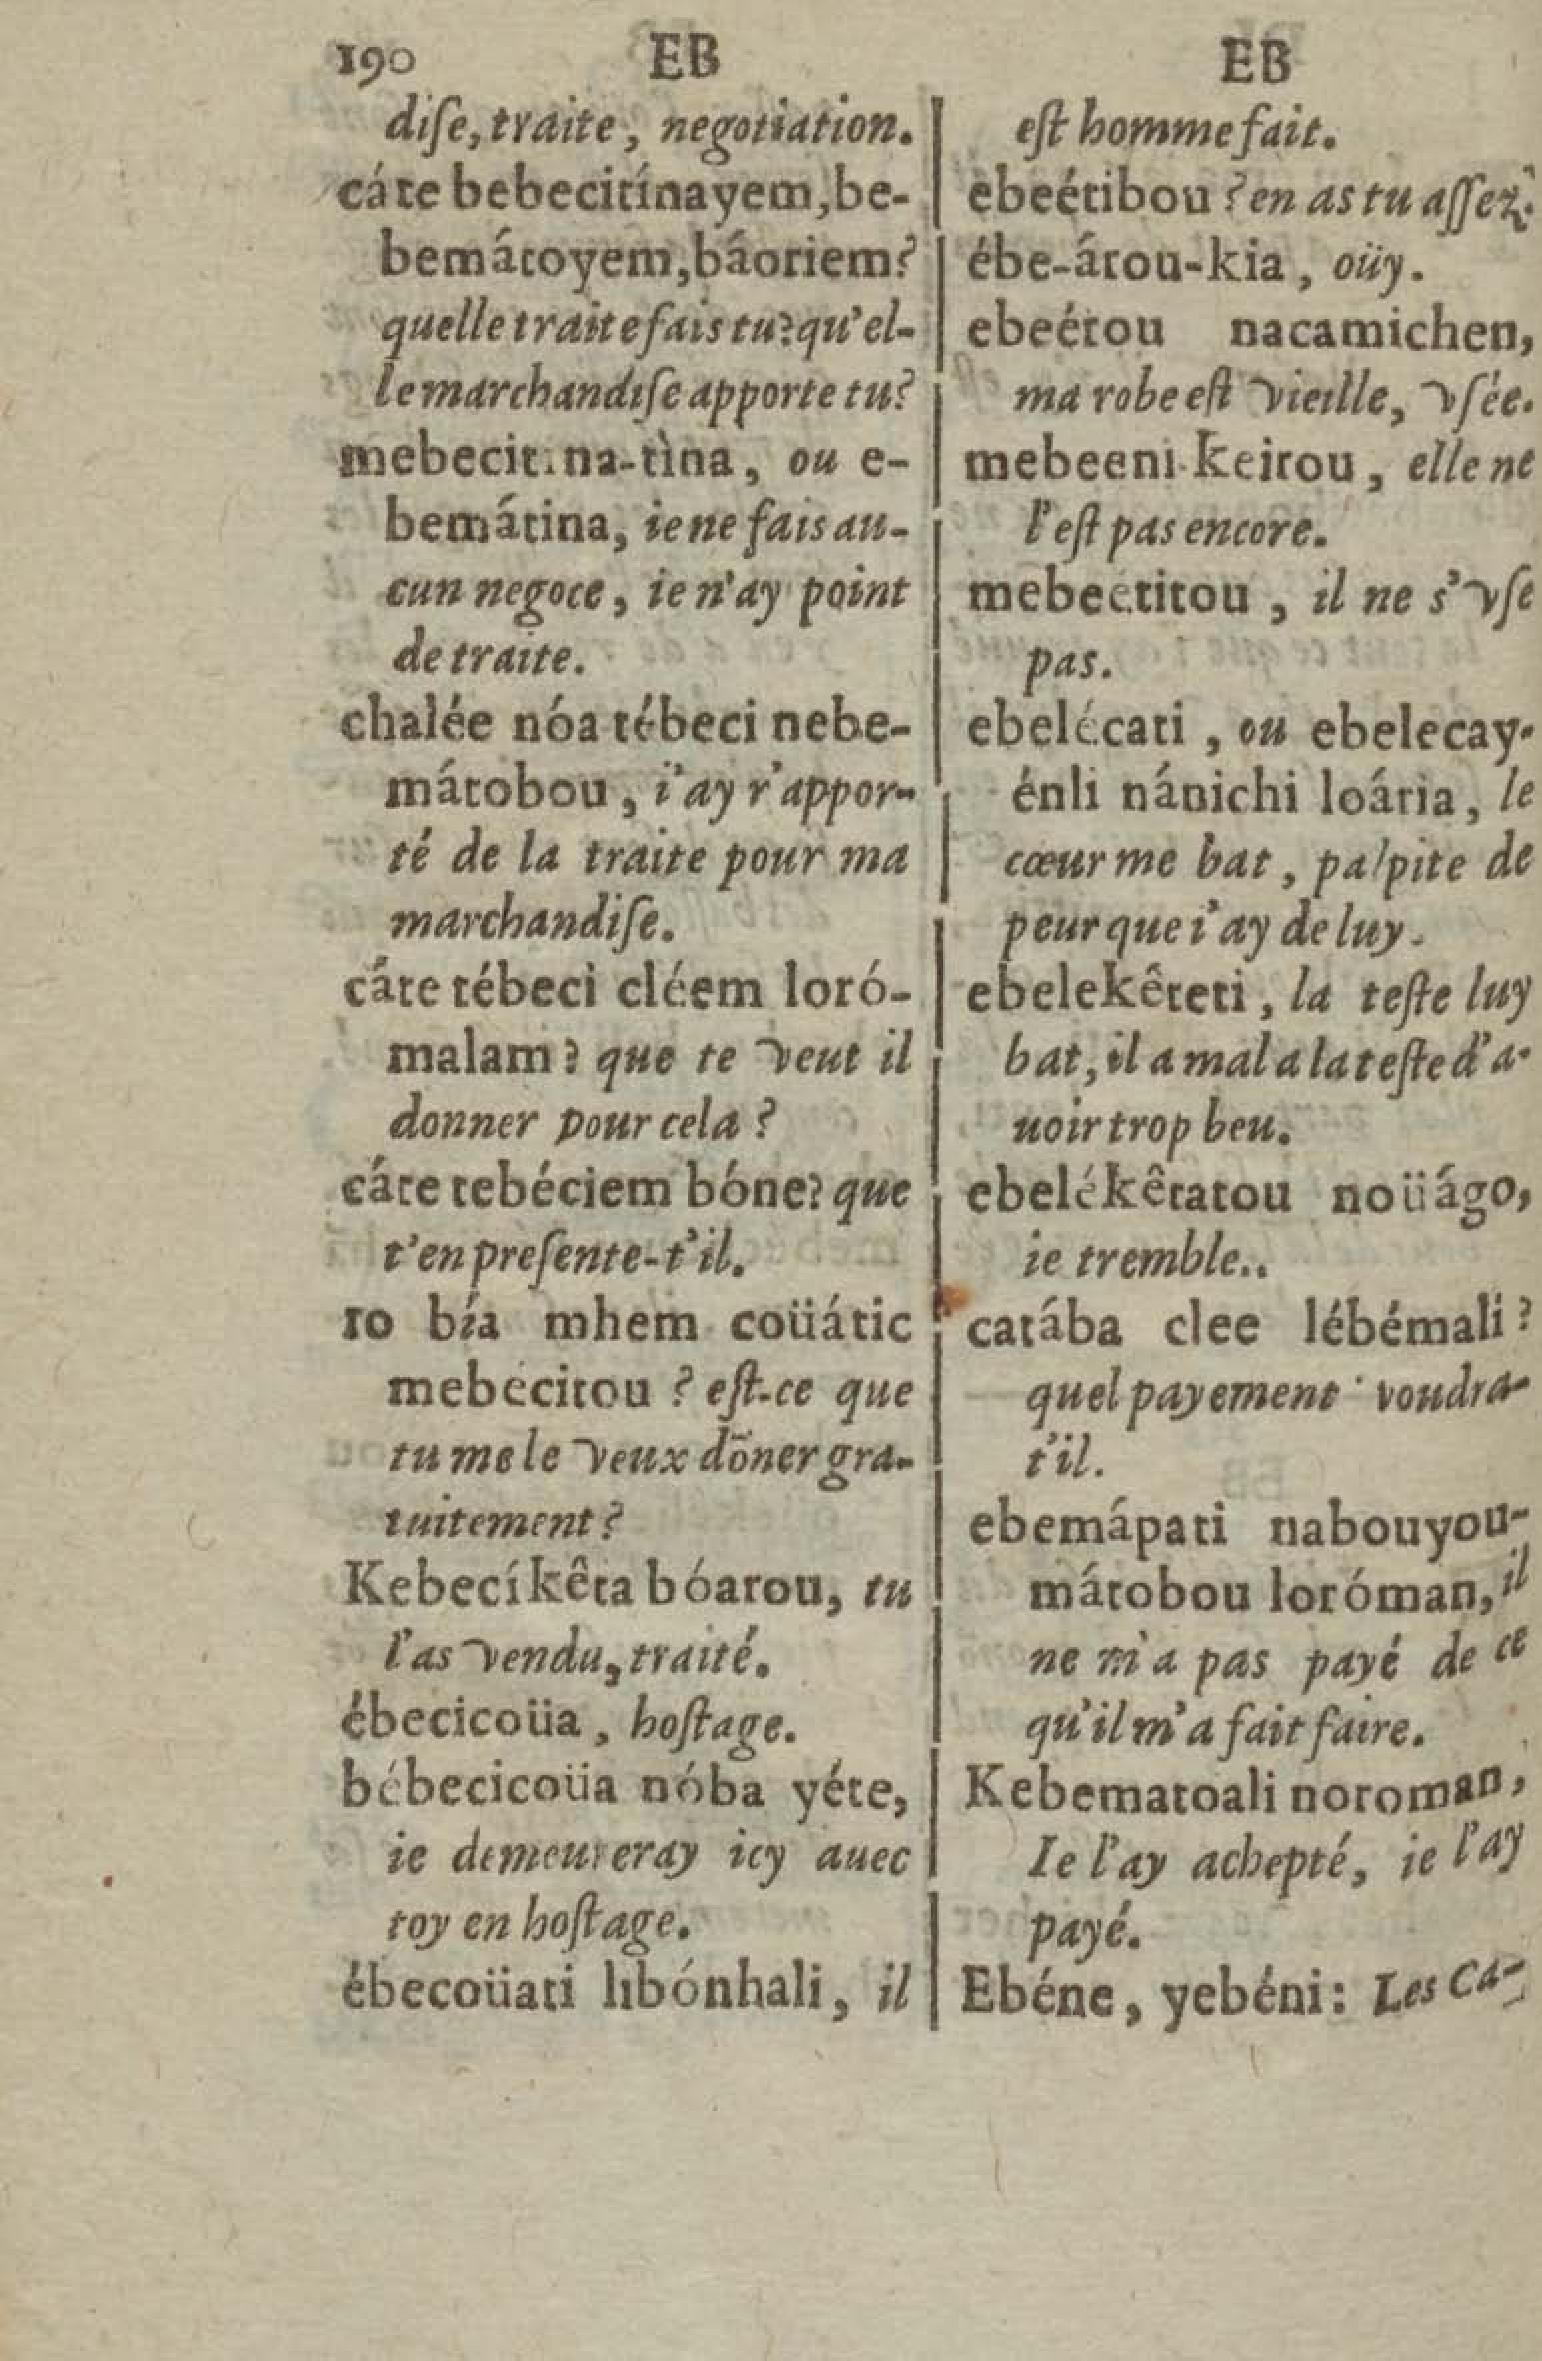 190 EB
diſe, traite, negotiation.
cáte bebecitínayem, be-
bemátoyem, báoriem?
quelle traite fais tu? qu'el-
le marchandiſe apporte tu?
mebecitina-tìna, ou e-
bemátina, ie ne fais au-
cun negoce, ie n'ay point
de traite.
chalée nóa tébeci nebe-
mátobou, i'ay r'appor-
té de la traite pour ma
marchandiſe.
cáte tébeci cléem loró-
malam? que te veut il
donner pour cela?
cáte tebéciem bóne? que
t'en preſente-t'il.
ro bía mhem coüátic
mebécitou? eſt-ce que
tu me le veux dõner gra-
tuitement?
Kebecíkêta bóarou, tu
l'as vendu, traité.
ébecicoüa, hoſtage.
bébecicoüa nóba yéte,
ie demeureray icy auec
toy en hoſtage.
ébecoüati libónhali, il
EB
eſt homme fait.
ebeétibou? en as tu aſſez?
ébe-átou-kia, oüy.
ebeétou nacamichen,
ma robe eſt vieille, vſée.
mebeeni-keirou, elle ne
l'eſt pas encore.
mebeétitou, il ne s'vſe
pas.
ebelécati, ou ebelecay-
énli nánichi loária, le
cœur me bat, palpite de
peur que i'ay de luy.
ebelekêteti, la teſte luy
bat, il a mal a la teſte d'a-
uoir trop beu.
ebelékêtatou noüágo,
ie tremble..
catába clee lébémali?
quel payement voudra-
t'il.
ebemápati nabouyou-
mátobou loróman, il
ne m'a pas payé de ce
qu'il m'a fait faire.
Kebematoali noroman,
Ie l'ay achepté, ie l'ay
payé.
Ebéne, yebéni: Les Ca-